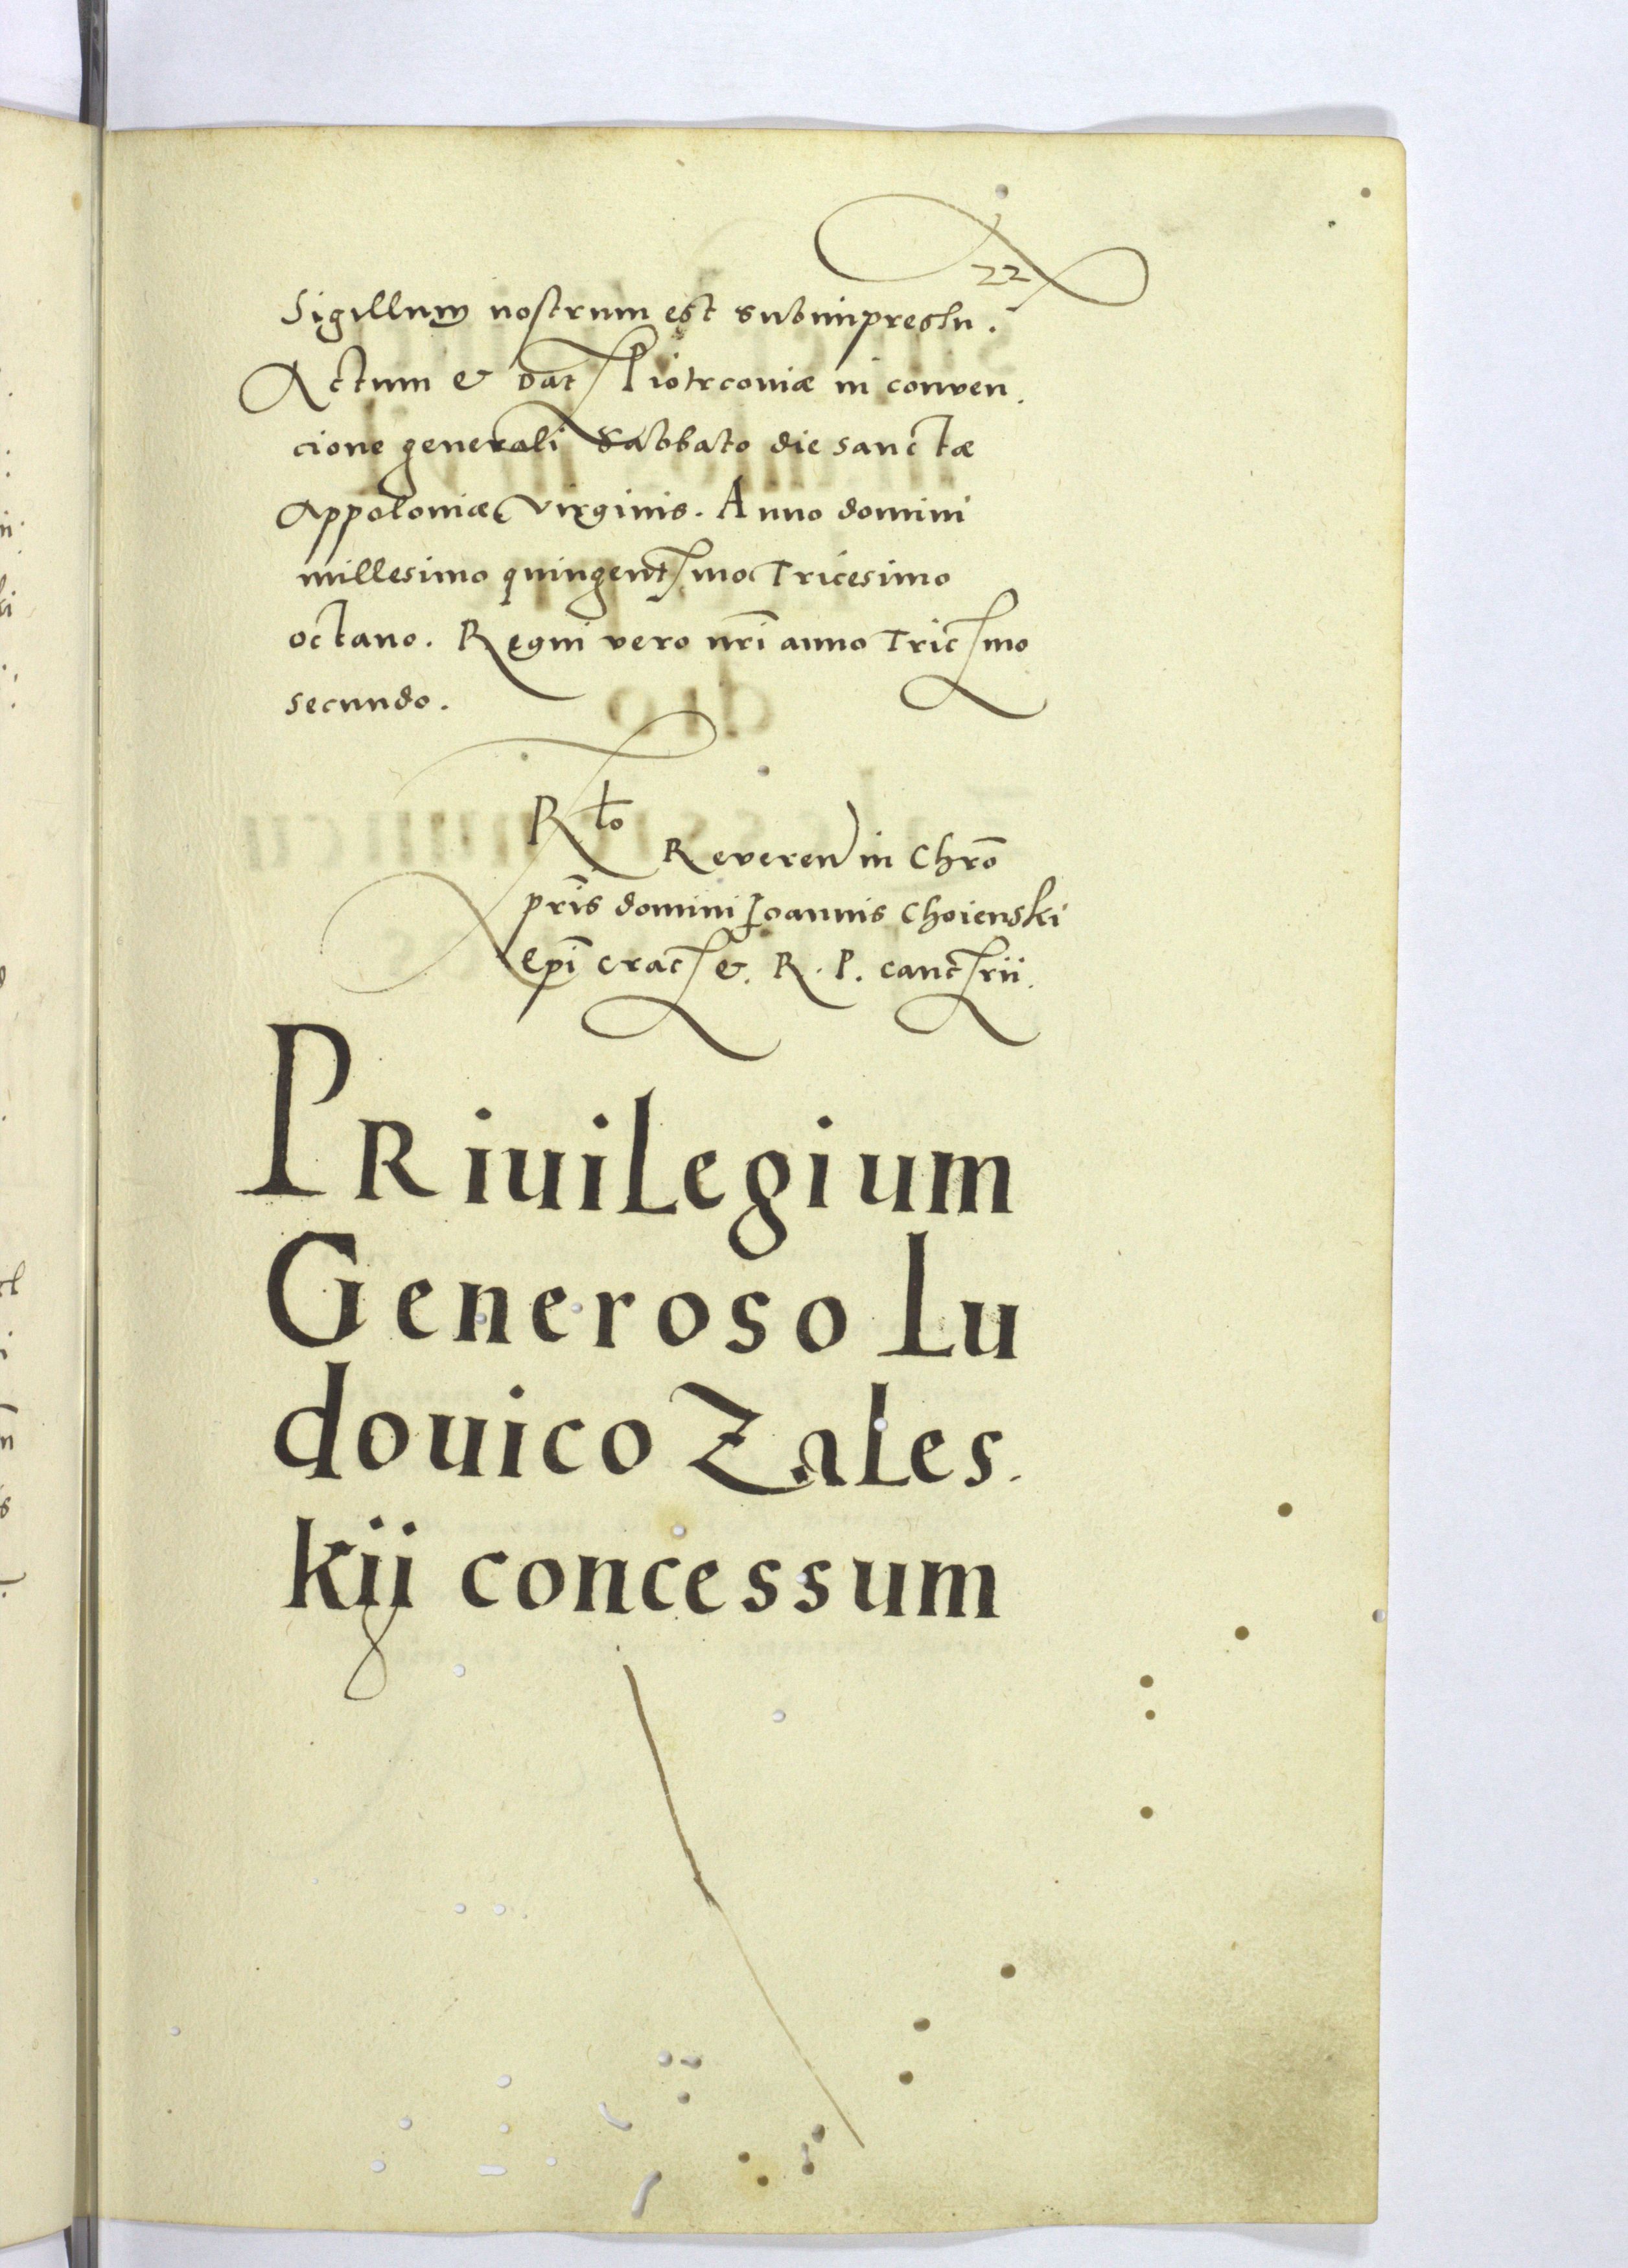 22
Sigillum nostrum est subimpressu.
Actum & Dat Piotrconiæ in conven
cione generali Sabbato die sanctæ
Appoloniæ Virginis. Anno domini
millesimo quingentmo Tricesimo
octavo. Regni vero nri anno Tricmo
secundo.
Rlo
Reveren in Chro
pris domini Joannis Choienski
Epi Crac & R. P. Canctrii.
PRiuiLegium
Generoso Lu
douico Zales.
kij concessum